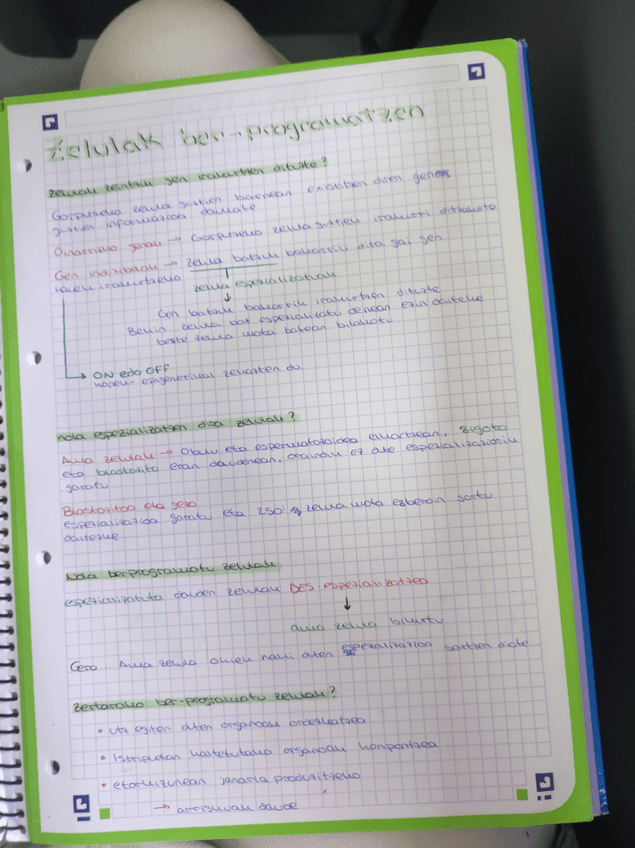 Zelulak ber-programatzen
Zelulak zeintzuk gen irakurtzen dituzte?
Gorputzeko zelula guztien barnean existitzen diren genes
guztien informazioa daukate
Oinarrizko genak → Gorputzeko zelula guztien irakurri ditzakete
Gen indibidualak → zelula batzuk bakarrik dira gai gen
hauek irakurtzeko
zelula espezializatuak
Gen batzuk bakarrik irakurtzen dituzte
Behin zelula bat espezialitatu denean ezin daiteke
beste zelula mota batean bihakatu
→ ON edo OFF
honek epigenetikak zehazten du.
Nola espezializatzen dira zelulak?
Ama zelulak → Obulu eta espermatozoidea elkartzean, zigoto
eta blastozito eran daudenean, oraindik ez dute espezializaziorik
garatu
Blastozitoa eta gero
espezializazioa garatu eta 250 zelula mota ezberdin sortu
daitezke
Nola berprogramatu zelulak
espezializatuta dauden zelulak DES-espezializatzea
↓
ama zelula bihurtu
Gero... Ama zelula okiek nahi duten espezializazioa sartzen diote.
Zertarako ber-programatu zelulak?
• Uts egiten duten organoak ordezkatzea
• Istripuetan kaltetutako organoak konpontzea
• etorkizunean janaria produzitzeko
→ arriskuak daude